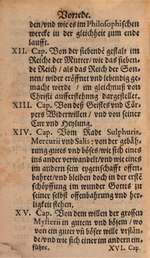 Vorrede.
den/und wie es im Philosophischen
wercke zu der gleichheit zum ende
laufft.
XII. Cap. Von der siebende gestalt im
Reiche der Mutter/wie das sieben-
de Reich/ als das Reich der Son-
nen/wider eröffnet und lebendig ge-
macht werde / im gleichnuß von
Christi aufferstehung dargestellet.
XIII. Cap. Von des Geistes und Cör-
pers Widerwillen / und von seiner
Cur und Heylung.
XIV. Cap. Vom Rade Sulphuris,
Mercurii und Salis: von der gebäh-
rung gutes und böses/wie sich eines
ins ander verwandelt/und wie eines
im andern sein eygenschafft offen-
bahret/ und bleiben doch in der erste
schöpffung im wunder Gottes zu
seiner selbst offenbahrung und her-
ligkeit stehen.
XV. Cap. Von dem willen der grossen
Mysterii in gutem und bösem/ wo
von ein gut und böser wille verstän-
de/und wie sich einer im andern ein-
führe. XVI. Cap.